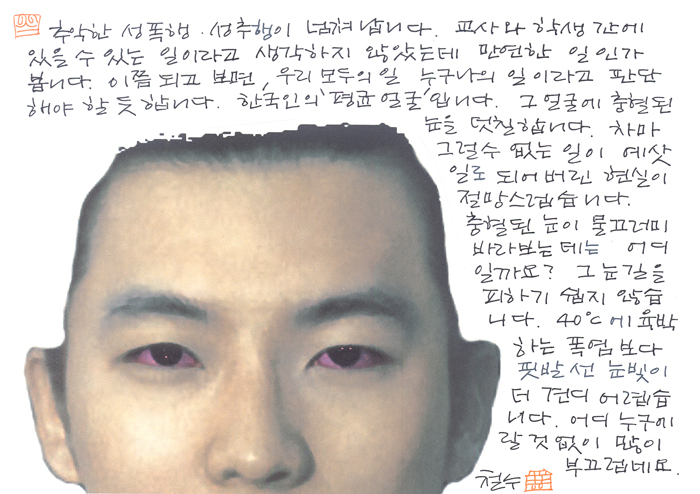 추악한 성폭행·성추행이 넘쳐 납니다. 교사와 학생 간에
있을 수 있는 일이라고 생각하지 않았는데 만연한 일인가
봅니다. 이쯤 되고 보면, 우리 모두의 일 누구나의 일이라고 판단
해야 할 듯 합니다. 한국인의 '평균 얼굴'입니다. 그 얼굴에 충혈된
눈을 덧칠합니다. 차마
그럴수 없는 일이 예삿
일로 되어버린 현실이
절망스럽습니다.
충혈된 눈이 물끄러미
바라보는 데는 어디
일까요? 그 눈길을
피하기 쉽지 않습
니다. 40℃에 육박
하는 폭염보다
핏발 선 눈빛이
더 견디 어렵습
니다. 어디 누구에
랄 것 없이 많이
부끄럽네요.
철수